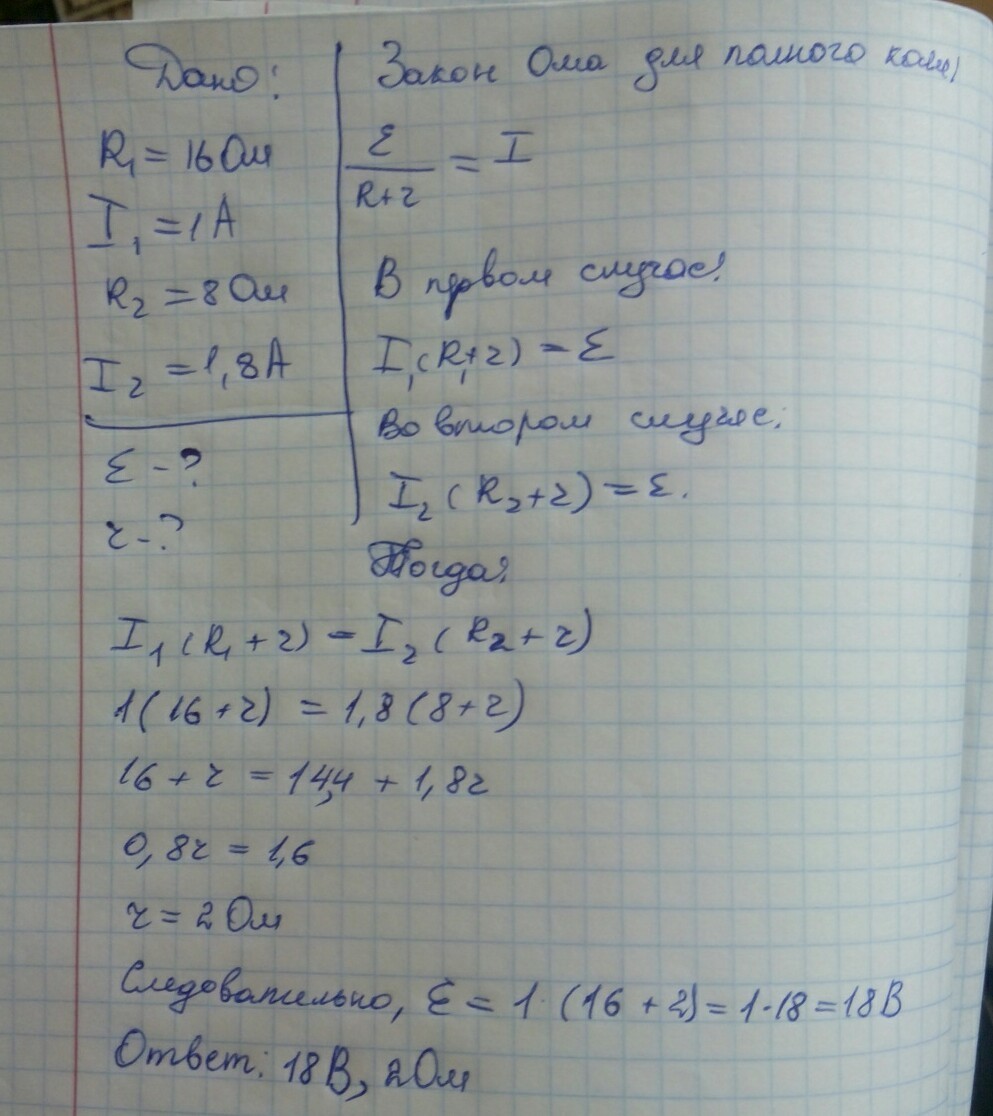 Дано:
R₁ = 16 Ом
I₁ = 1 А
R₂ = 8 Ом
I₂ = 1,8 А
ε - ?
r - ?
Закон Ома для полного
ε/(R+r) = I
В первом случае:
I₁(R₁+r) = ε
Во втором случае:
I₂(R₂+r) = ε.
Тогда:
I₁(R₁+r) = I₂(R₂+r)
1(16+r) = 1,8(8+r)
16+r = 14,4 + 1,8r
0,8r = 1,6
r = 2 Ом
Следовательно, ε = 1·(16+2) = 1·18 = 18 В
Ответ: 18 В, 2 Ом